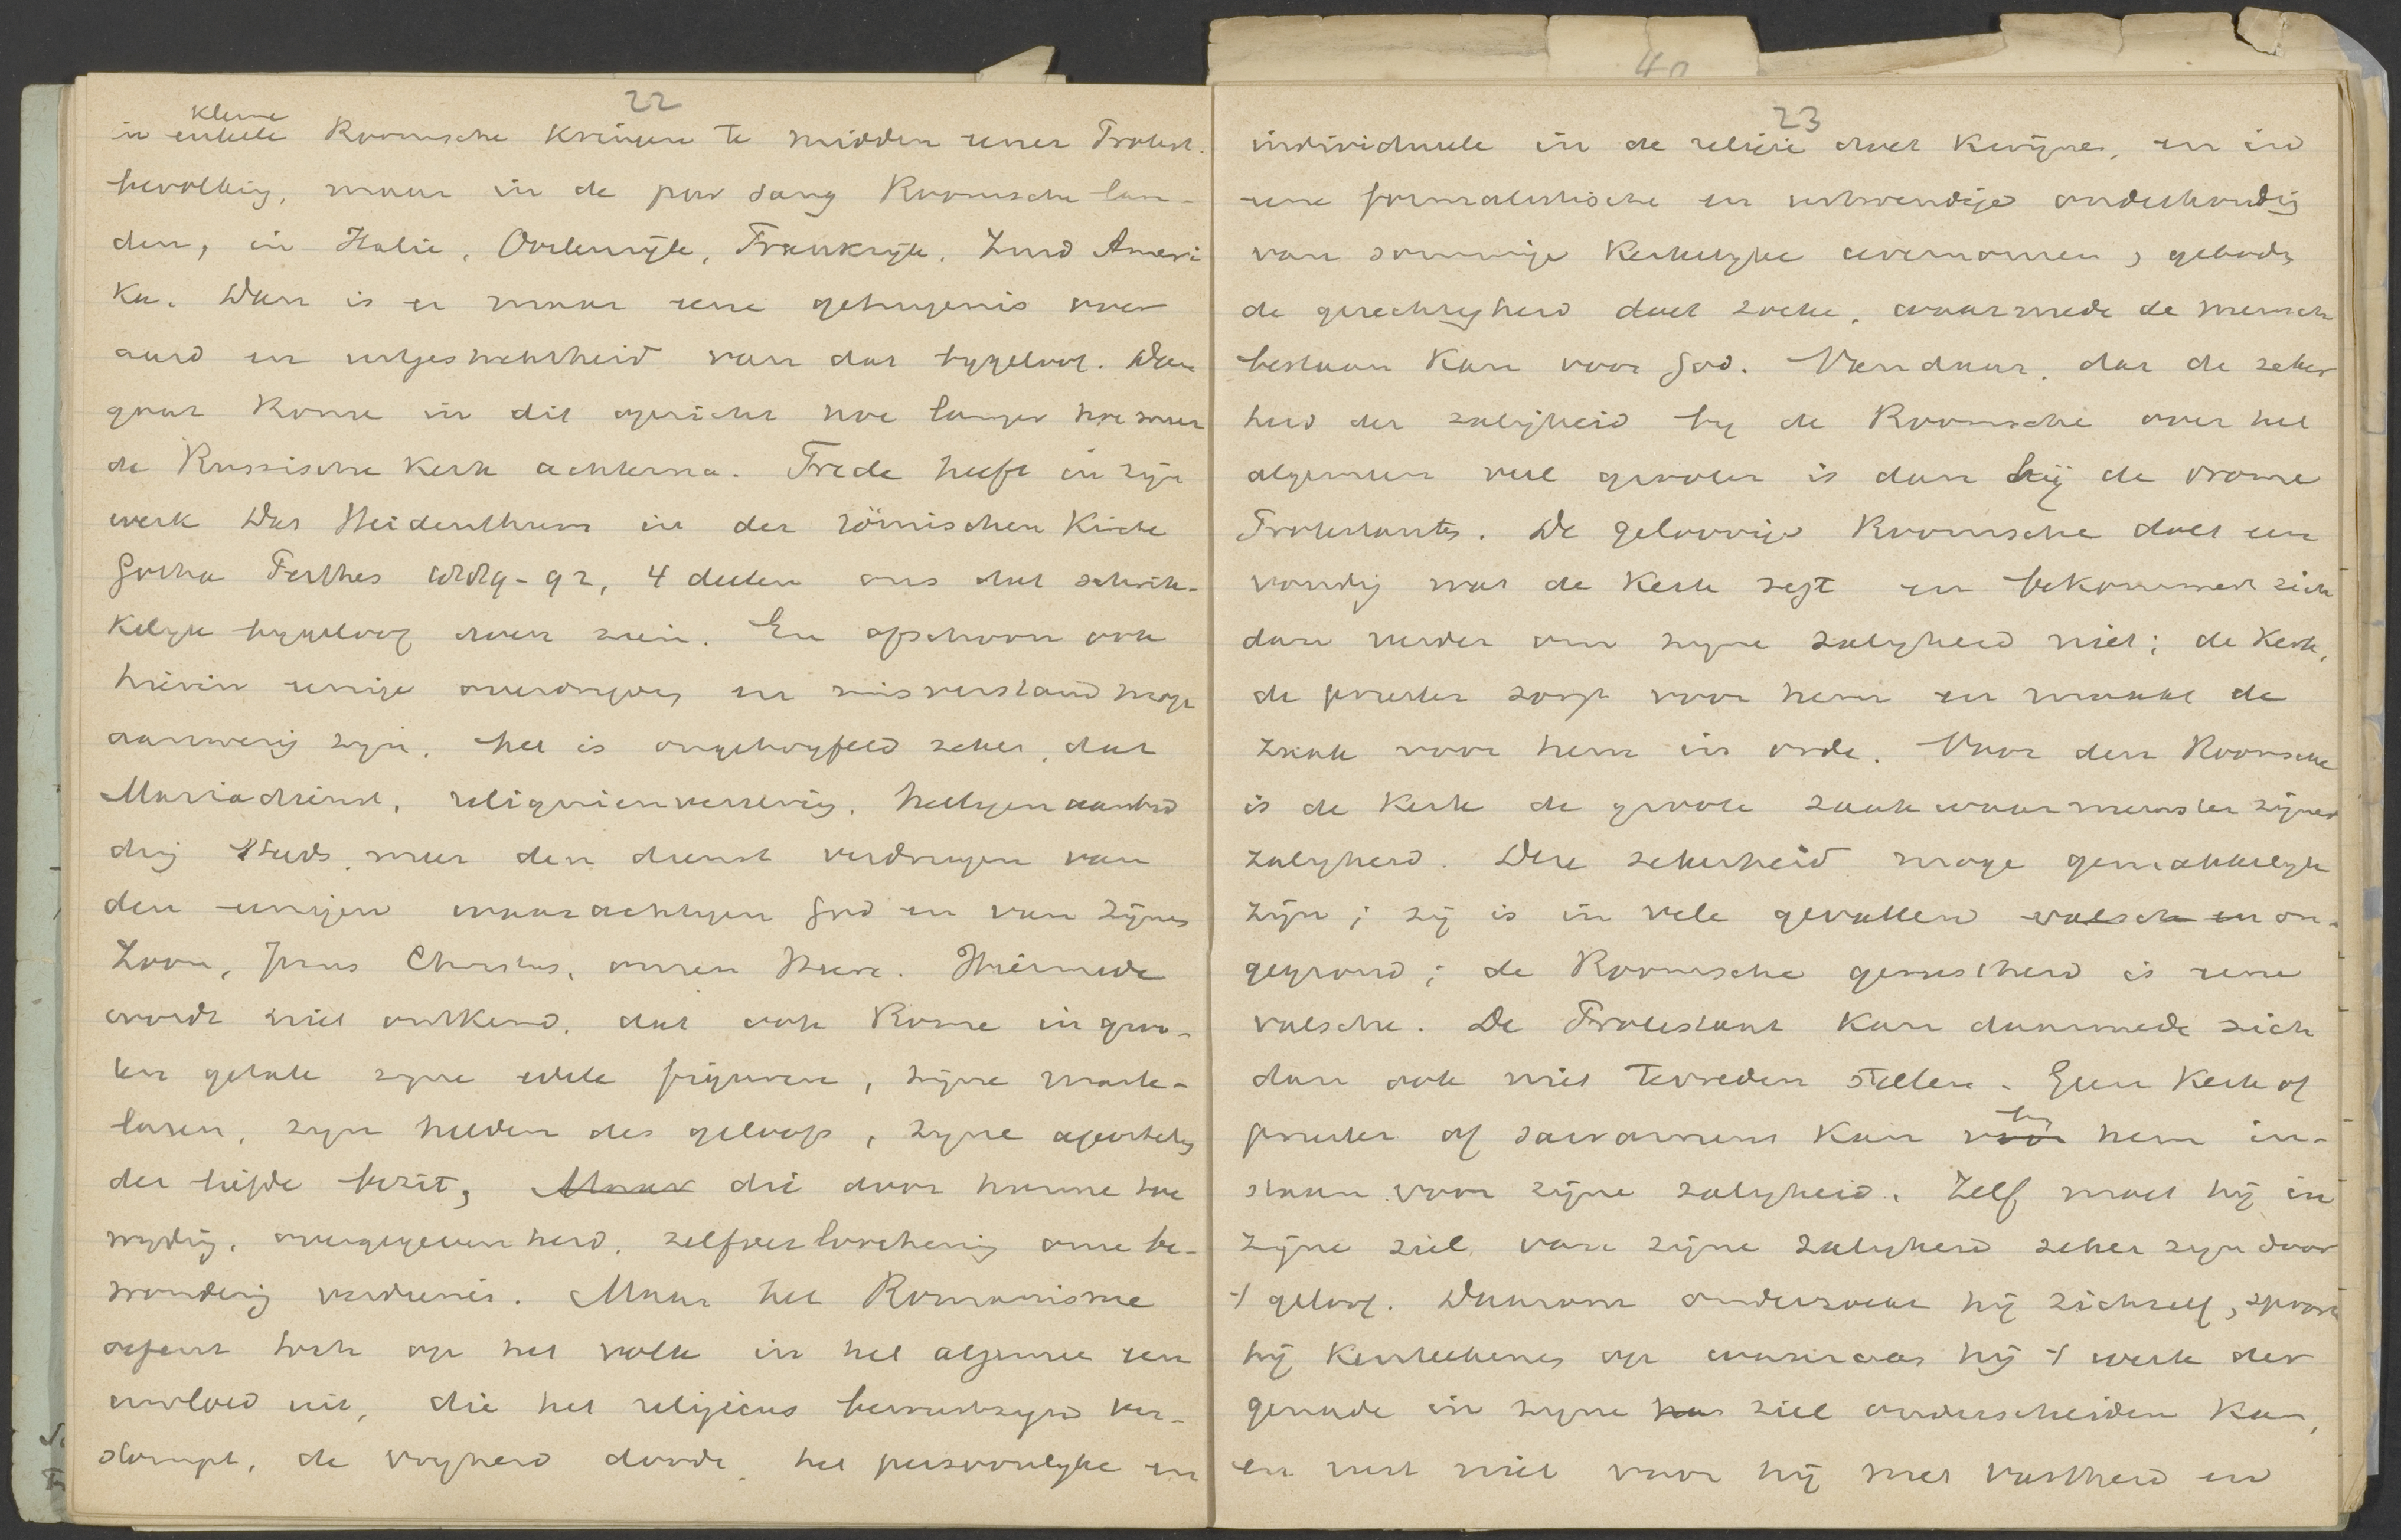 22
kleine
in enkele Roomsche kringen te midden eener Protest.
bevolking, maar in de pur sang Roomsche lan-
den, in Italie, Oostenrijk, Frankrijk, Zuid Ameri
ka. Daar is er maar eene getuigenis over
aard en uitgestrektheid van dat bygeloof. Daar
gaat Rome in dit opzicht hoe langer hoe meer
de Russische Kerk achterna. Trede heeft in zijn
werk Das Heidenthum in der römischen Kirche
Gotha Perthes 1889-92, 4 deelen ons dat schrik-
kelijk bygeloof doen zien. En ofschoon ook
hierin eenige overdrijving en misverstand moge
aanwezig zijn, het is ongetwyfeld zeker, dat
Mariadienst, reliquienvereering, heiligenaanbid
ding steeds meer den dienst verdringen van
den eenigen waarachtigen God en van Zijnen
Zoon, Jezus Christus, onzen Heere. Hiermede
wordt niet ontkend, dat ook Rome in groo-
ten getale zyne edele figuren, zijne marte-
laren, zijn helden des geloofs, zyne apostelen
der liefde bezit, Maar die door hunne toe
wijding, overgegevenheid, zelfverloochening onze be-
wondering verdienen. Maar het Romanisme
oefent toch op het volk in het algemeen een
invloed uit, die het religieus bewustzijn ver-
stompt, de vryheid doodt, het persoonlyke en
40
23
individueele in de religie doet kwijnen, en in
eene formalistische en uitwendige onderhouding
van sommige kerkelyke ceremonien, geboden
de gerechtigheid doet zoeken, waarmede de mensch
bestaan kan voor God. Vandaar, dat de zeker
heid der zaligheid by de Roomsche over het
algemeen veel grooter is dan bij de vrome
Protestanten. De geloovige Roomsche doet een
voudig wat de Kerk zegt en bekommert zich
dan verder om zyne zaligheid niet; de Kerk,
de priester zorgt voor hem en maakt de
zaak voor hem in orde. Voor den Roomsche
is de Kerk de groote zaakwaarneemster zijner
zaligheid. Deze zekerheid moge gemakkelijk
zijn; zij is in vele gevallen valsch en on-
gegrond; de Roomsche gerustheid is eene
valsche. De Protestant kan daarmede zich
dan ook niet tevreden stellen. Geen Kerk of
by
priester of sacrament kan voor hem in-
staan voor zijne zaligheid. Zelf moet hij in
zijne ziel van zijne zaligheid zeker zijn door
't geloof. Daarom onderzoekt hij zichzelf, spoort
hij kenteekenen op waaraan hij 't werk der
genade in zijne har ziel onderscheiden kan,
en rust niet voor hij met vastheid en